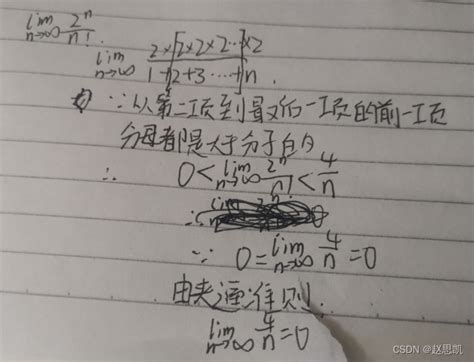 lim n→∞ 2ⁿ/n!
lim n→∞ 2×2×2×2…×2 / 1+2+3…+n.
∵从第二项到最后一项的前一项
分母都是大于分子的
∴ 0<lim n→∞ 2ⁿ/n!<4/n
∴
∵ 0=lim n→∞ 4/n=0
由夹逼准则.
lim n→∞ 4/n=0
CSDN @赵思凯